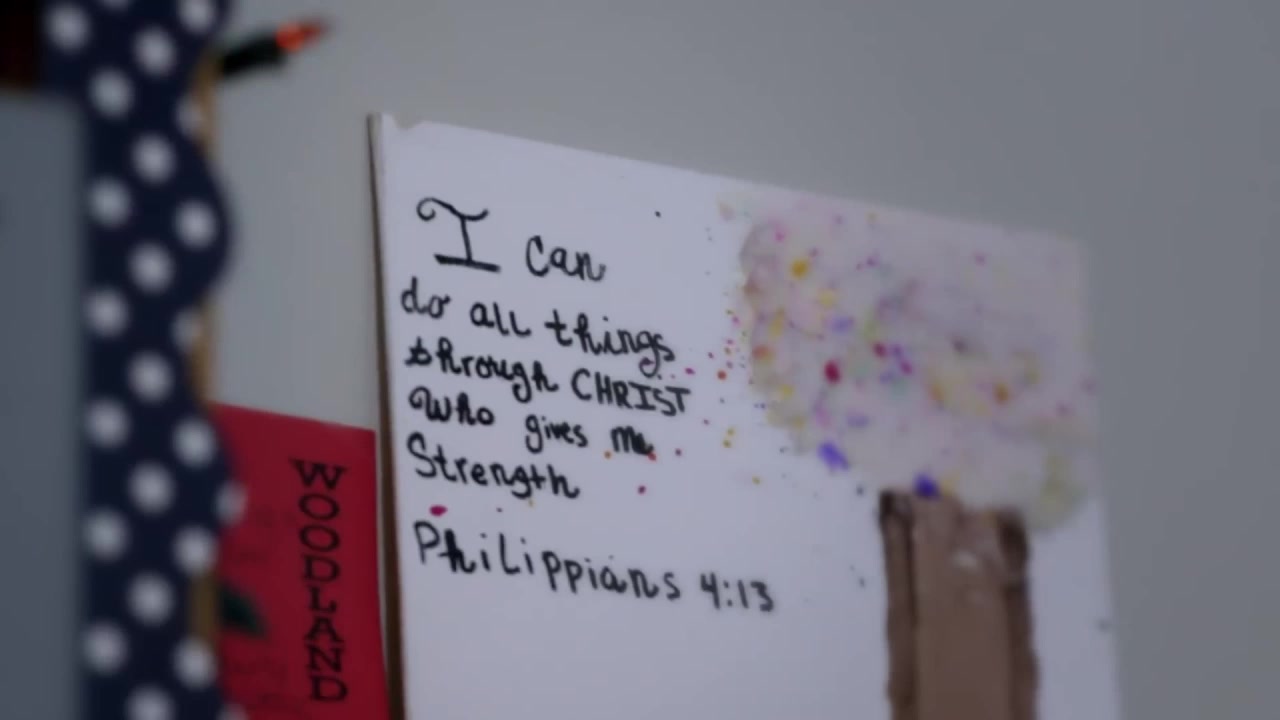 I can
do all things
through CHRIST
Who gives me
Strength
Philippians 4:13
WOODLAND